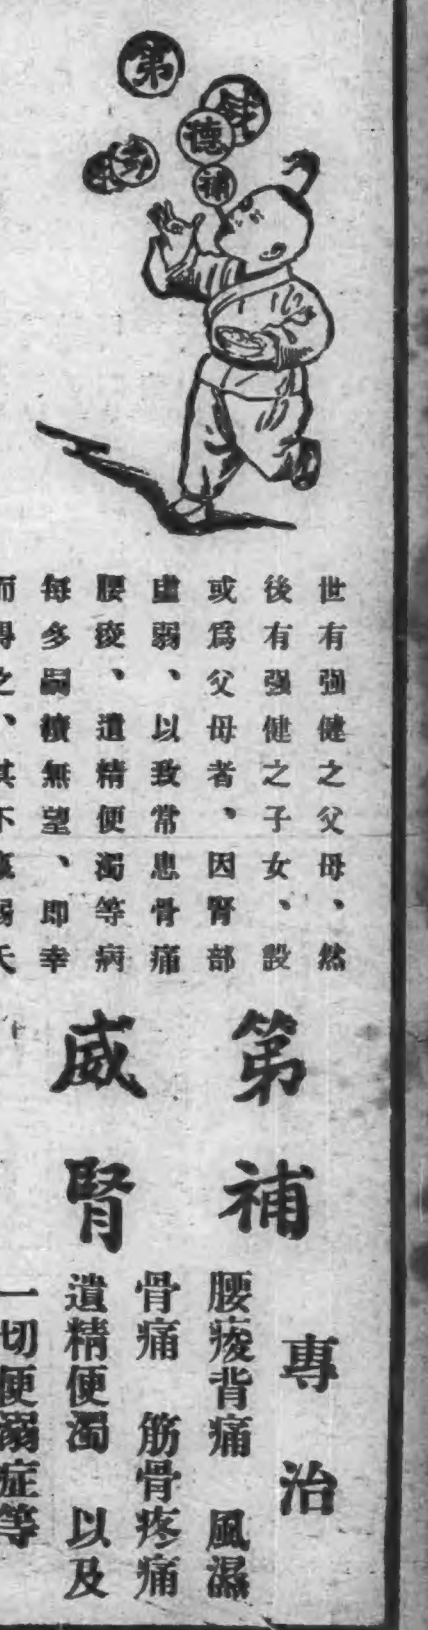 第
德
補
世有强健之父母、然
後有强健之子女、設
或爲父母者、因腎部
虛弱、以致常患骨痛
腰痠、遺精便濁等病
每多嗣續無望、即幸
而得之、其不
第威
補腎
專治
腰痠背痛 風濕
骨痛 筋骨疼痛
遺精便濁 以及
一切便溺症等